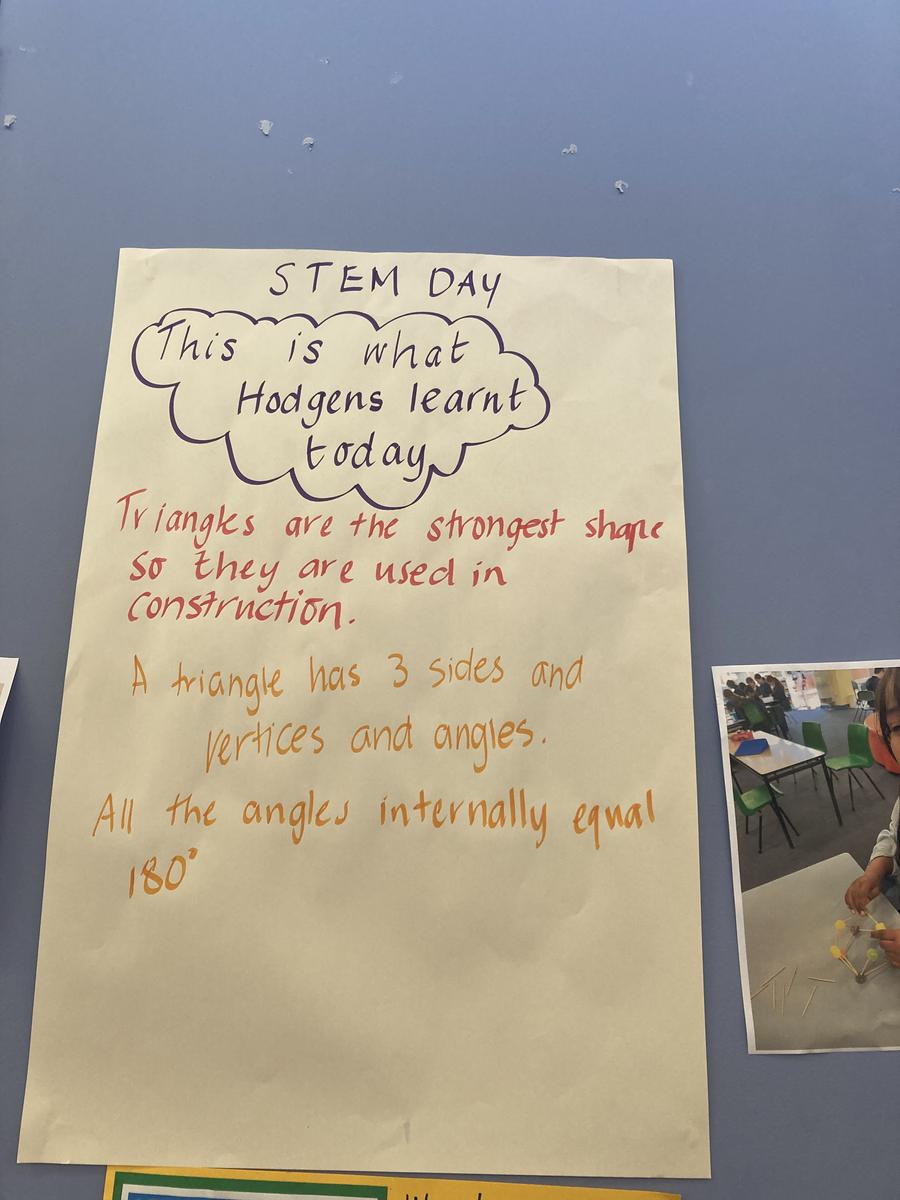 STEM DAY
This is what
Hodgens learnt
today
Triangles are the strongest shape
so they are used in
construction.
A triangle has 3 sides and
vertices and angles.
All the angles internally equal
180°